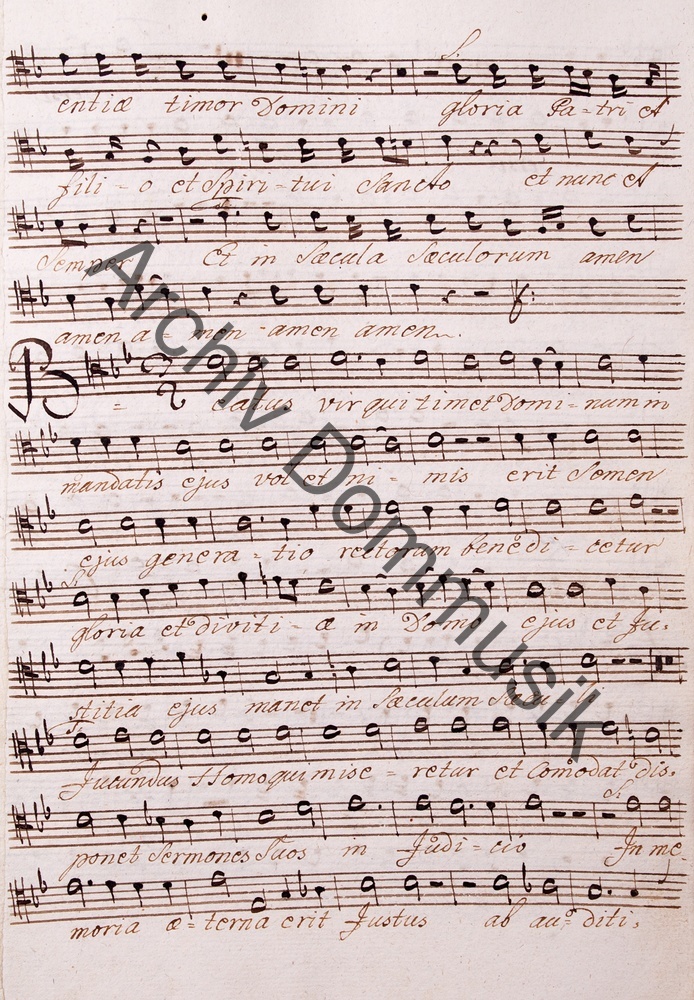 S.
entiæ timor Domini gloria Pa=tri et
fili-o et Spiri-tui Sancto et nunc et
Semper Et in Sæcula Sæculorum amen
amen a-men-amen amen.
B=eatus vir qui timet Domi=num in
mandatis ejus volet ni=mis erit Semen
ejus genera=tio rectorum benedi=cetur
gloria et diviti-æ in Domo ejus et Ju=
stitia ejus manet in Sæculum Sæcu-li
Jucundus Homo qui mise=retur et Comodat dis=
ponet Sermones Suos in Judi=cio In me=
moria æ=terna erit Justus ab au=diti=
Archiv Dommusik